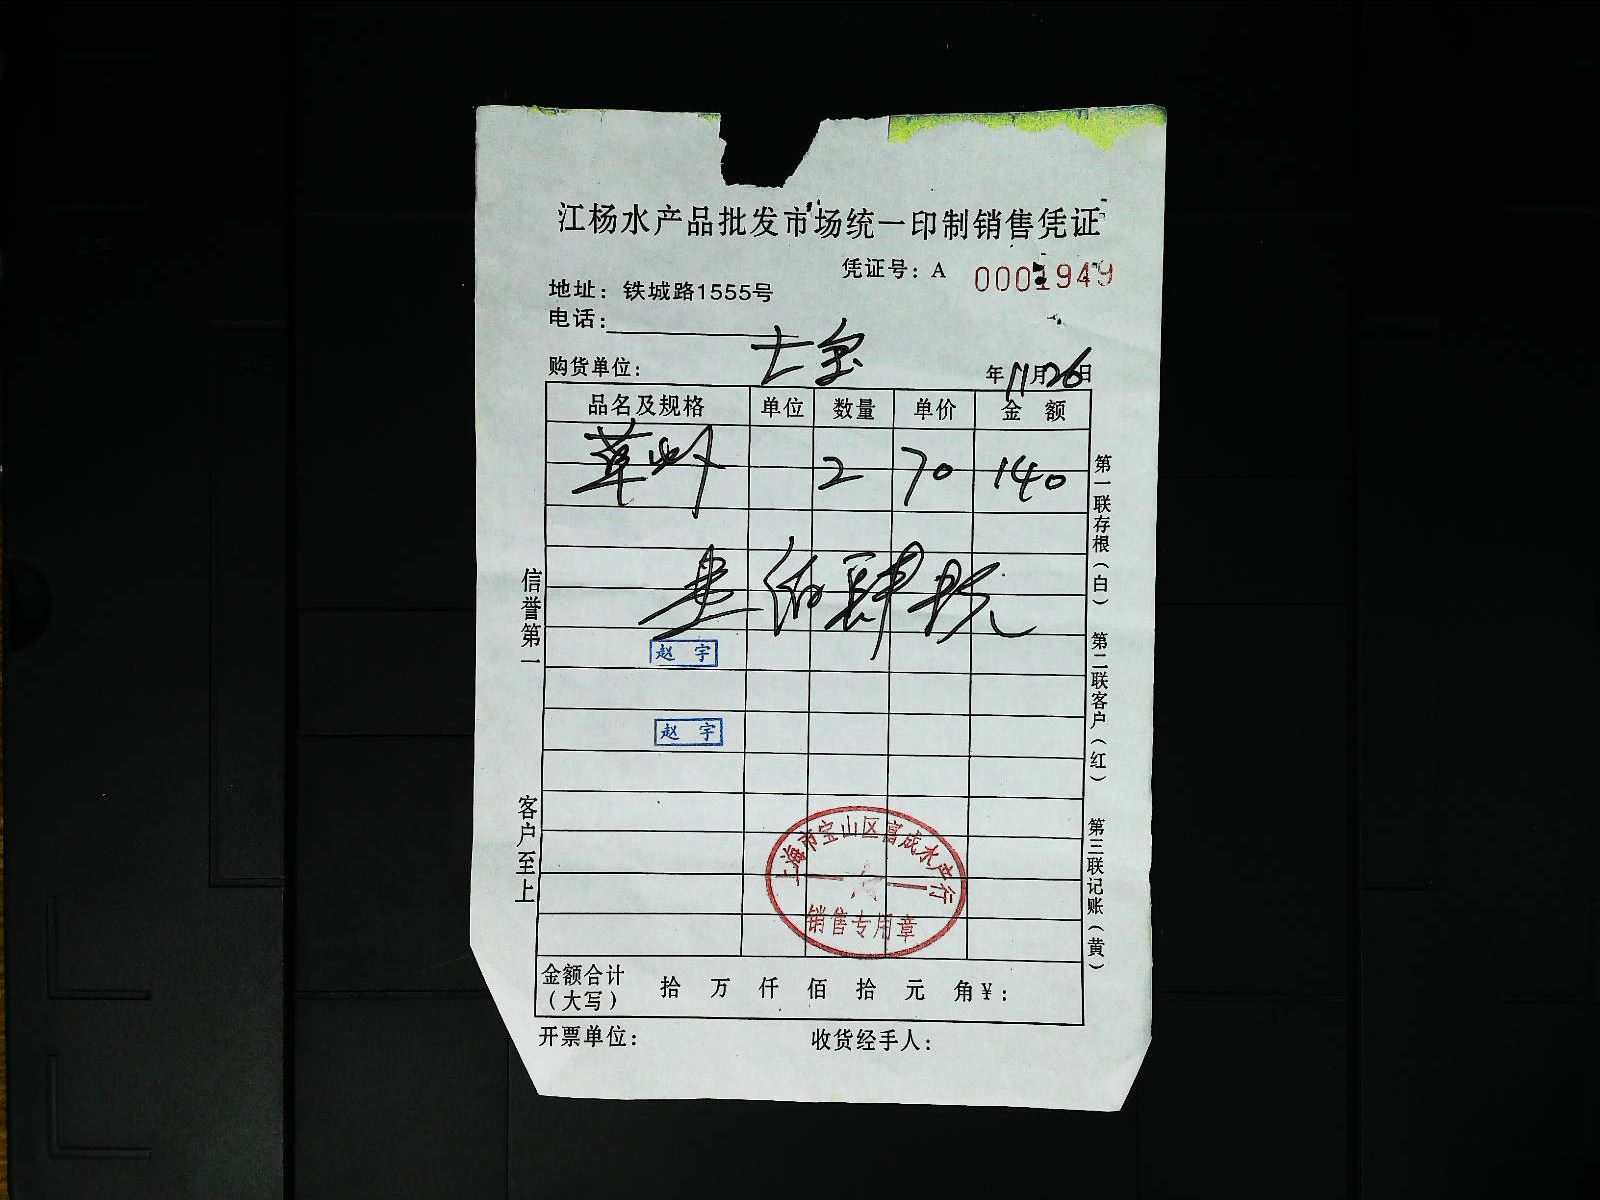 江杨水产品批发市场统一印制销售凭证
凭证号：A 0001949
地址：铁城路1555号
电话：
购货单位：
年11月26日
品名及规格 单位 数量 单价 金额
草虾 2 70 140
壹佰肆拾元
赵宇
赵宇
上海市宝山区喜成水产行
销售专用章
金额合计（大写） 拾 万 仟 佰 拾 元 角 ¥：
开票单位： 收货经手人：
信誉第一
客户至上
第一联存根（白）
第二联客户（红）
第三联记账（黄）